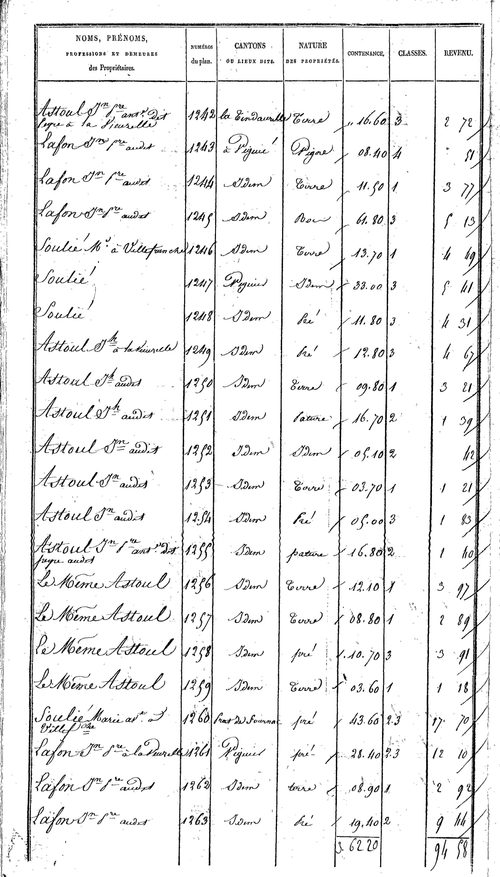 NOMS, PRÉNOMS, PROFESSIONS ET DEMEURES des Propriétaires. NUMÉROS du plan. CANTONS OU LIEUX DITS. NATURE DES PROPRIÉTÉS. CONTENANCE. CLASSES. REVENU.
Astoul Jn Pre 1242 Terre 16.60 3 2 72
à la
Lafon Jn Pre audit 1243 à Piguié Vigne 08.40 4 51
Lafon Jn Pre audit 1244 Idem Terre 11.50 1 3 77
Lafon Jn Pre audit 1245 Idem Bois 61.80 3 5 13
Soulié à Villefranche 1246 Idem Terre 13.70 1 4 49
Soulié 1247 Piguié Idem 33.00 3 5 41
Soulié 1248 Idem Pré 11.80 3 4 31
Astoul Jh à la 1249 Idem Pré 12.80 3 4 67
Astoul Jh audit 1250 Idem Terre 09.80 1 3 21
Astoul Jh audit 1251 Idem Pature 16.70 2 1 39
Astoul Jn audit 1252 Idem Idem 05.10 2 42
Astoul Jn audit 1253 Idem Terre 03.70 1 1 21
Astoul Jn audit 1254 Idem Pré 05.00 3 1 83
Astoul Jn Pre 1255 Idem pature 16.80 2 1 40
audit
Le Même Astoul 1256 Idem Terre 12.10 1 3 97
Le Même Astoul 1257 Idem Terre 08.80 1 2 89
Le Même Astoul 1258 Idem pré 10.70 3 3 91
Le Même Astoul 1259 Idem Terre 03.60 1 1 18
Soulié Marie 1260 pré 43.60 2.3 17 70
Lafon Jn Pre à la 1261 Piguié pré 28.40 2.3 12 10
Lafon Jn Pre audit 1262 Idem terre 08.90 1 2 92
Lafon Jn Pre audit 1263 Idem Pré 19.40 2 9 44
3 62 20 94 58